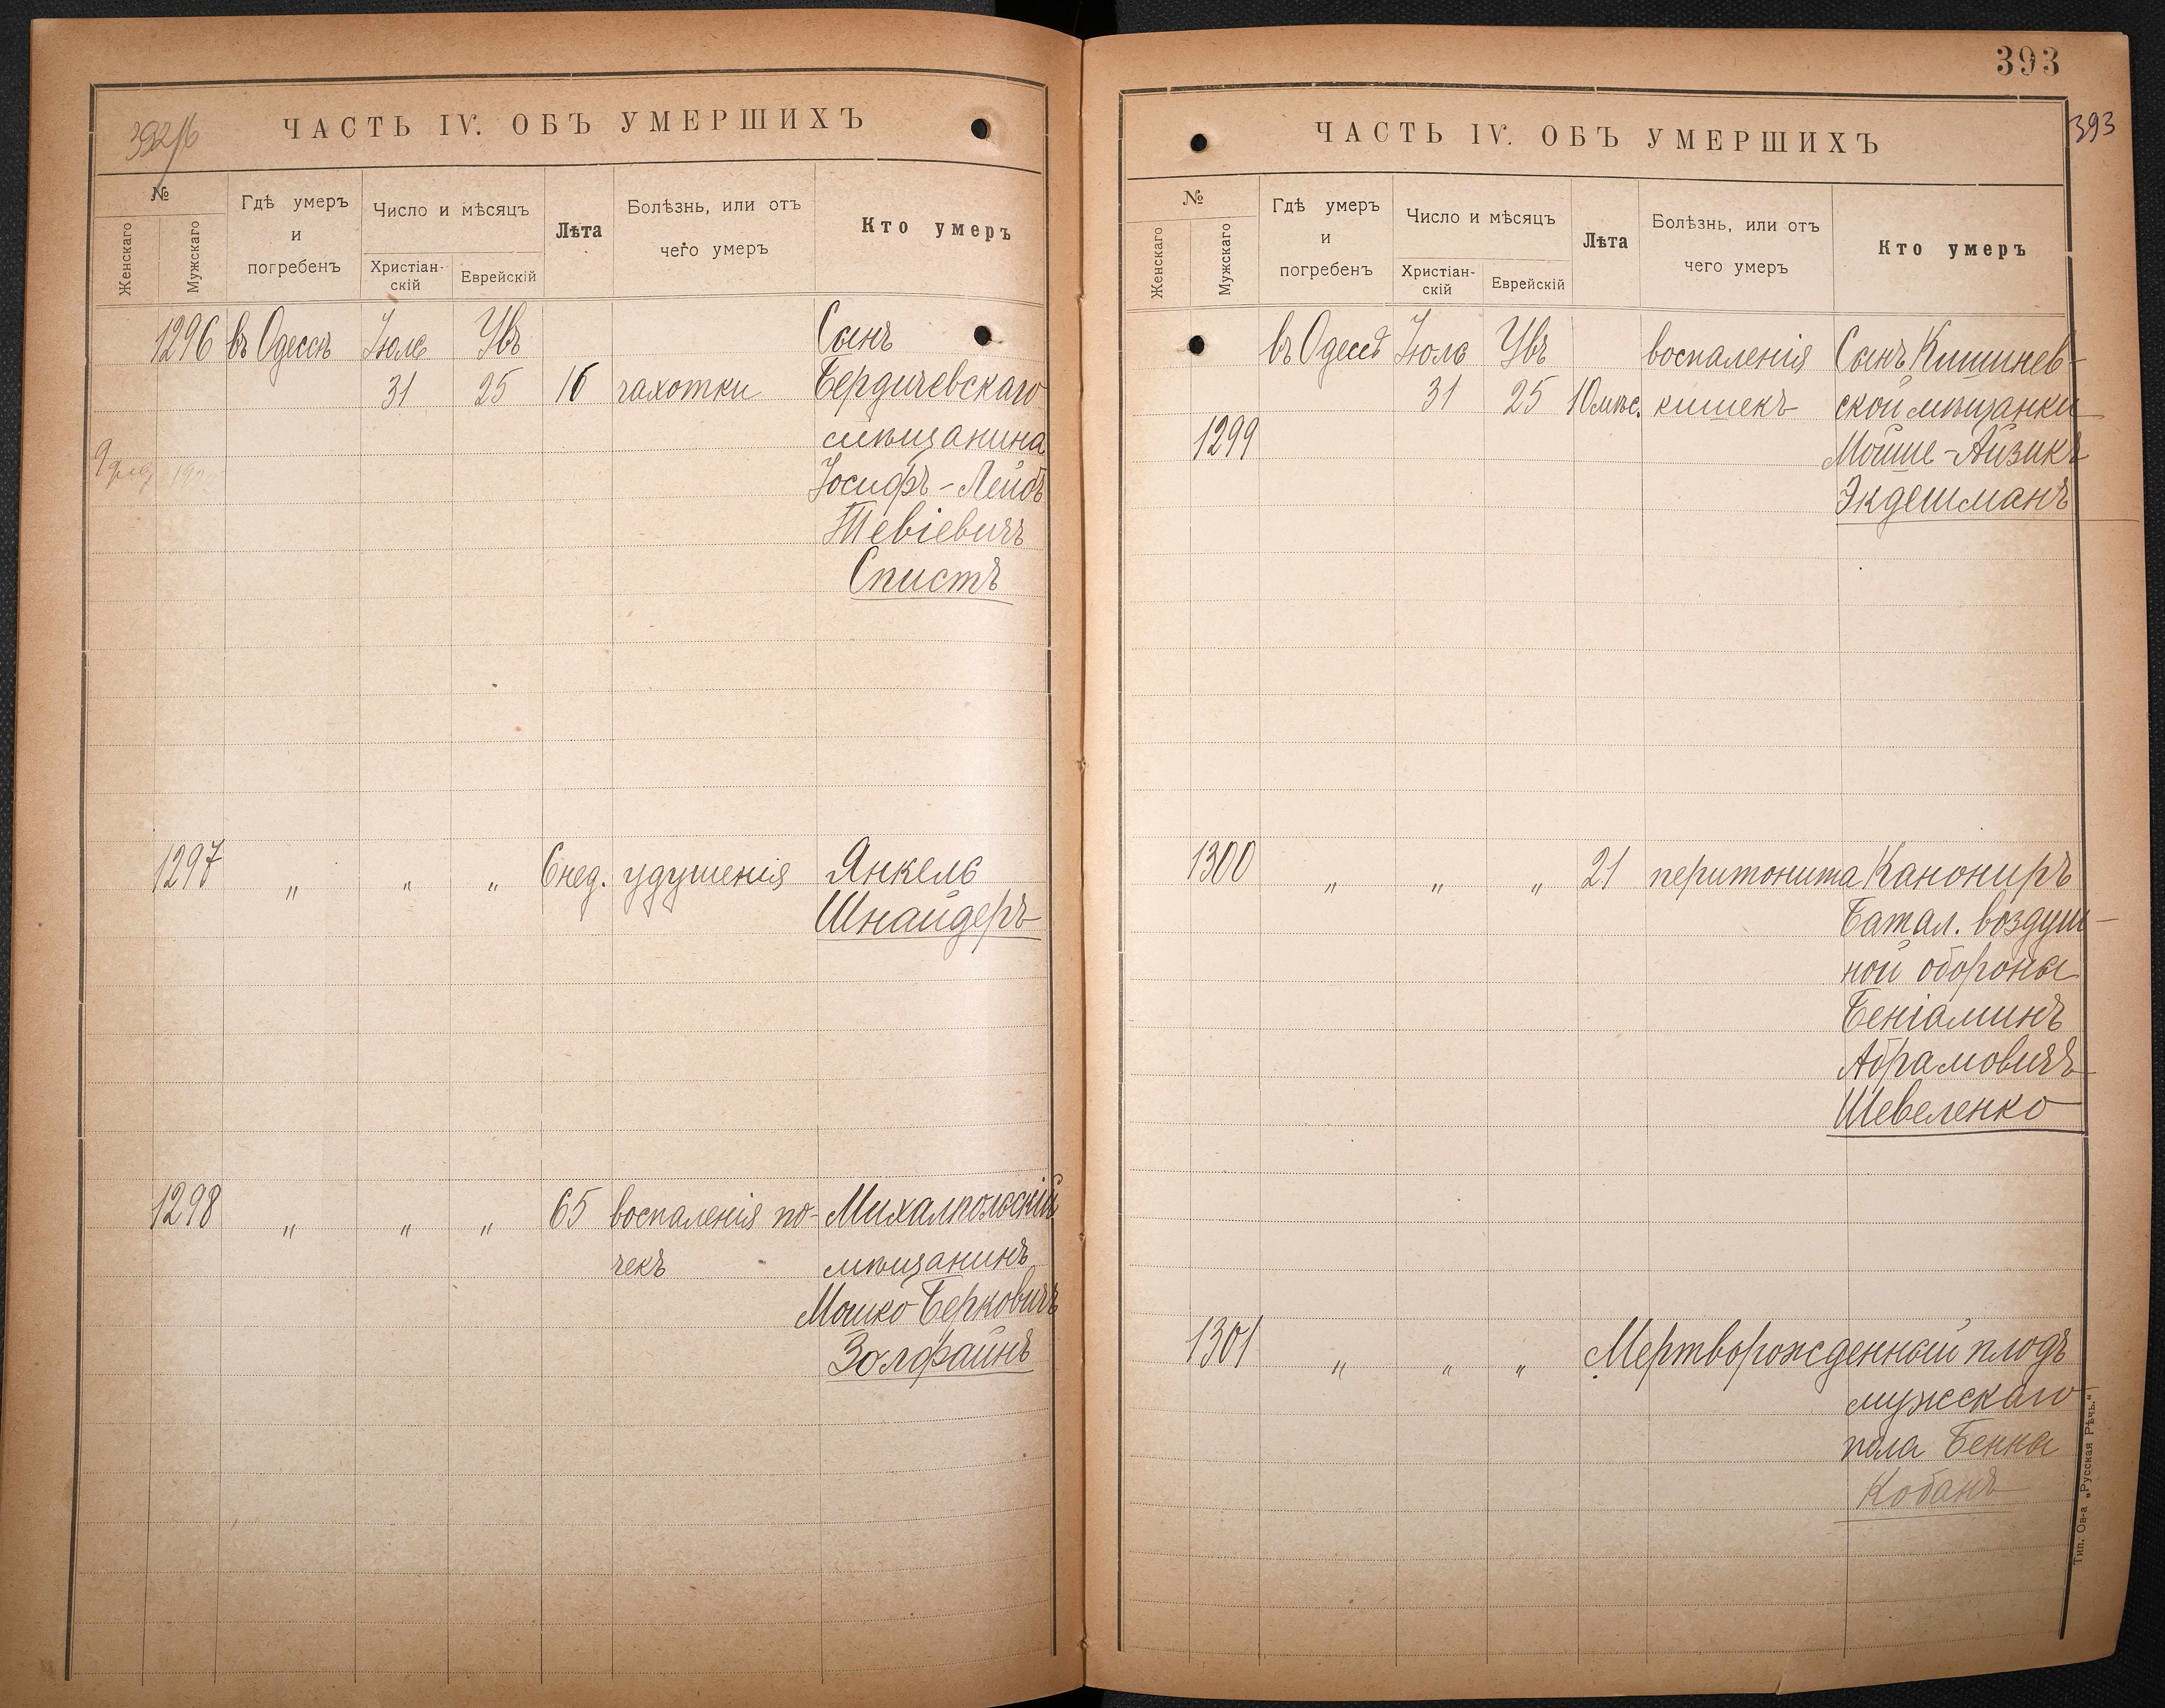 392/б
ЧАСТЬ IV. ОБЪ УМЕРШИХЪ
№
Женскаго
Мужскаго
Гдѣ умеръ
и
погребенъ
Число и мѣсяцъ
Христіан-
скій
Еврейскій
Лѣта
Болѣзнь, или отъ
чего умеръ
Кто умеръ
1296 въ Одессѣ Іюль Увъ Сынъ
31 25 16 чахотки Бердичевскаго
мѣщанина
Іосифъ-Лейбъ
Тевіевичъ
Спистъ
1297 „ „ „ 6 нед. удушенія Янкель
Шнайдеръ
1298 „ „ „ 65 воспаленія по- Михалпольскій
чекъ мѣщанинъ
Мошко Берковичъ
Золфайнъ
393
393
ЧАСТЬ IV. ОБЪ УМЕРШИХЪ
№
Женскаго
Мужскаго
Гдѣ умеръ
и
погребенъ
Число и мѣсяцъ
Христіан-
скій
Еврейскій
Лѣта
Болѣзнь, или отъ
чего умеръ
Кто умеръ
въ Одессѣ Іюль Увъ воспаленія Сынъ Кишинев-
31 25 10 мѣс. кишекъ ской мѣщанки
1299 Мойше-Айзикъ
Экдешманъ
1300 „ „ „ 21 перитонита Канониръ
Батал. воздуш-
ной обороны
Беніаминъ
Абрамовичъ
Шевеленко
1301 „ „ „ Мертворожденный плодъ
мужскаго
пола Бенна
Кобанъ
Тип. Ов-а „Русская Рѣчь.“